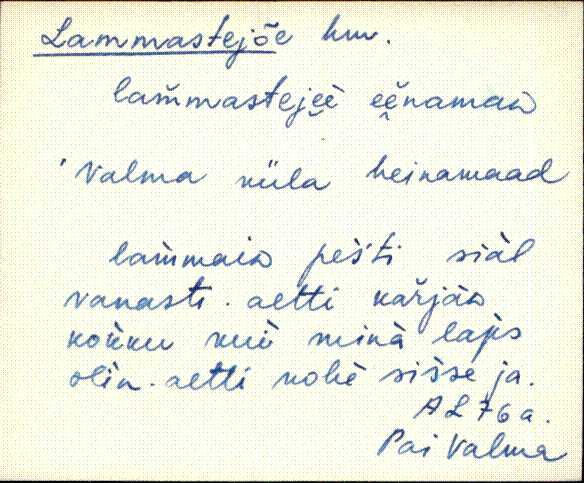 Lammastejõe hm.
lam̀mastejẹẹ̀ ẹẹ̀namaa
'Valma küla heinamaad
lam̀maìa pès̀ti siàl
vanasti. aetti kar̀jàa
kok̀ku kuì minà laps̀
olìn. aetti kohè sis̀se ja.
AL 76 a.
Pai Valma